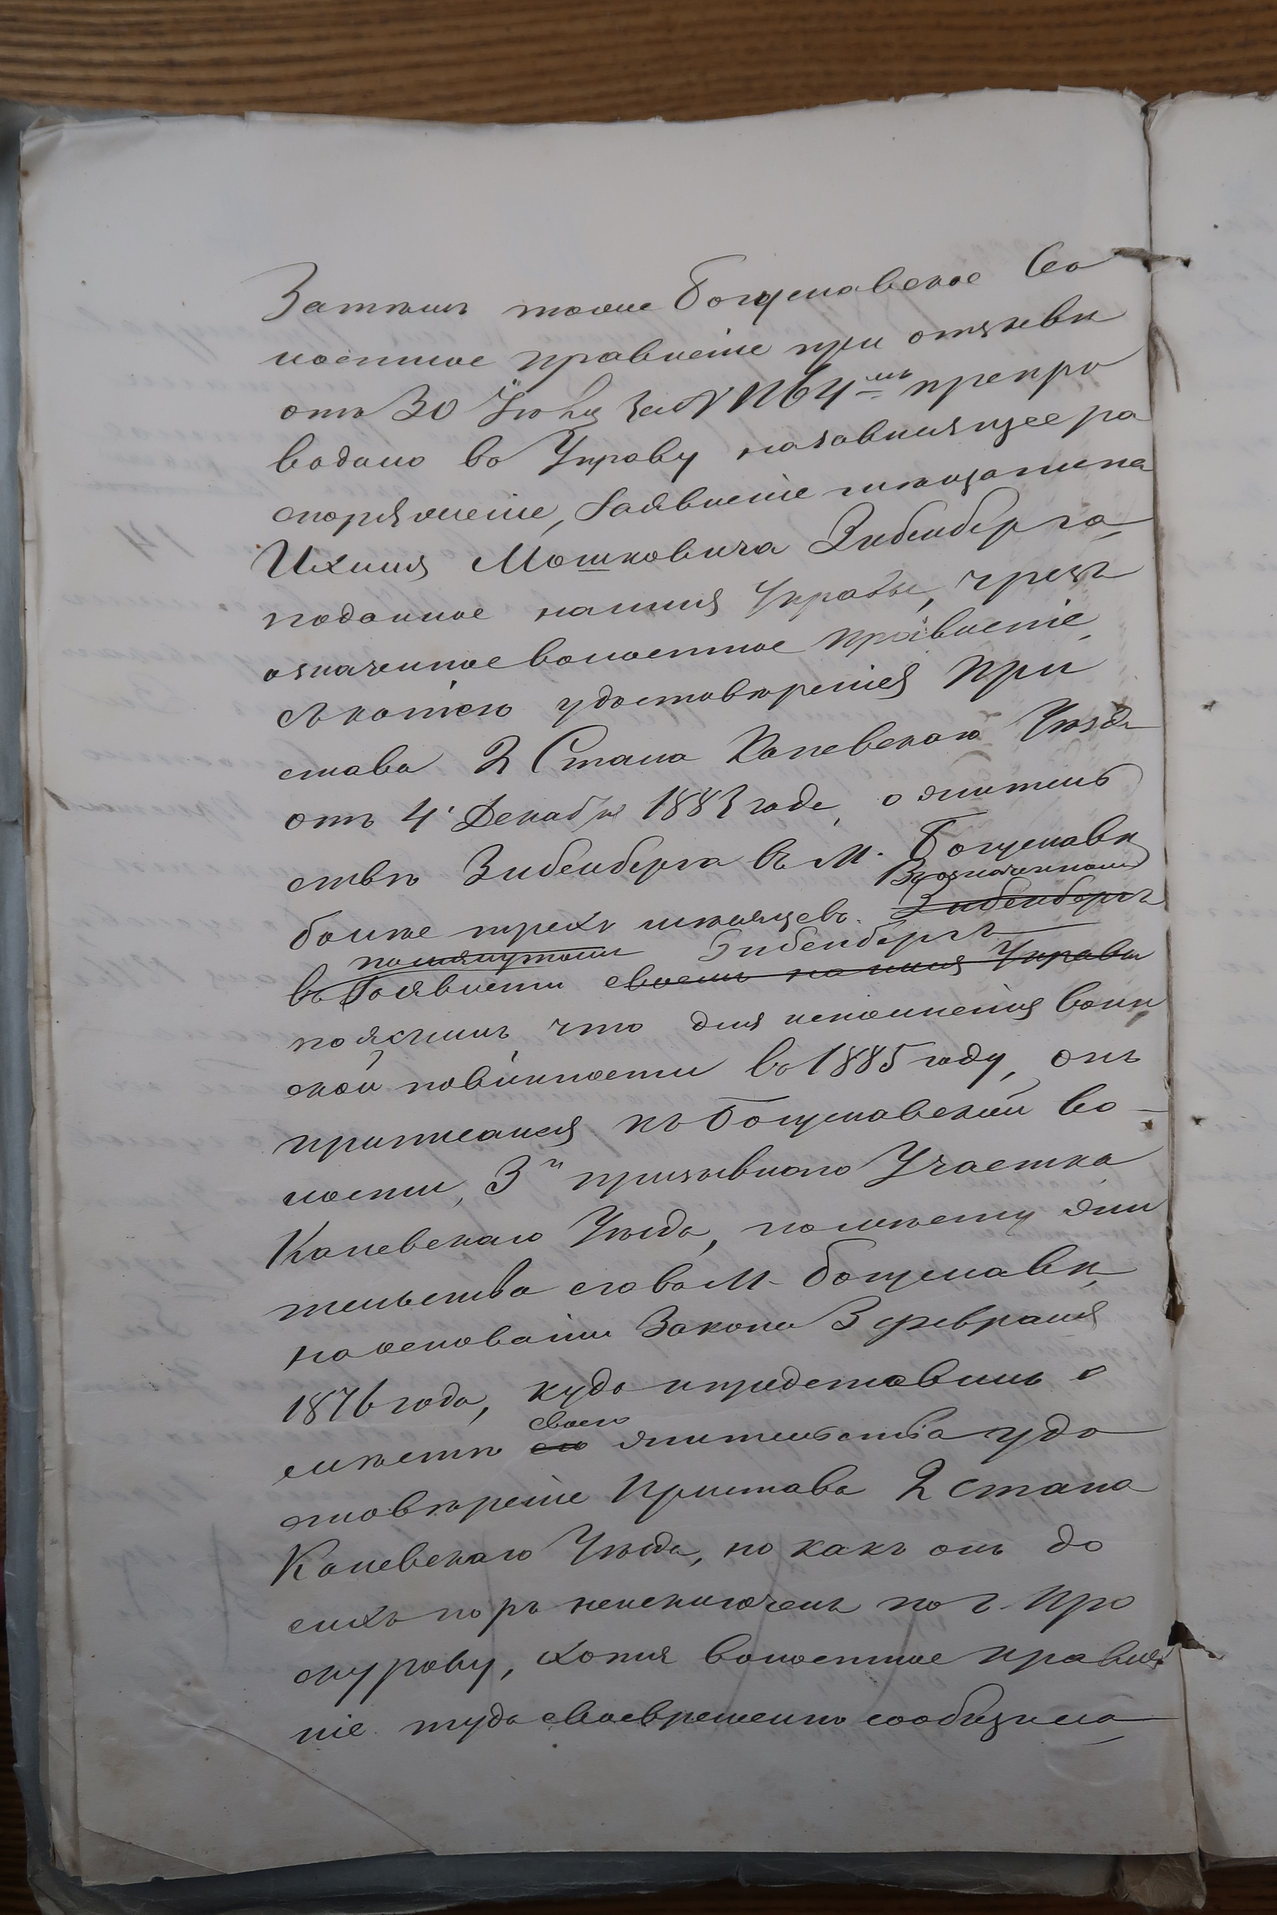 Затѣмъ тоже Богуславское во
лостное правленіе при отзывѣ
отъ 30 Іюля за № 1164мъ препро
водило въ Управу назависящее ра
споряженіе, заявленіе мѣщанина
Ихиля Мошковича Зибенберга,
поданное наимя Управы, чрезъ
означенное волостное правленіе,
съ копіею удостовѣренія При
става 2 Стана Каневскаго Уѣзда
отъ 4 Декабря 1883 года, о житель
ствѣ Зибенберга въ м. Богуславѣ
болѣе трехъ мѣсяцевъ. Въ означенномъ
Зибенбергъ
помянутомъ Зибенбергъ
въ Заявленіи своемъ на имя Управы
пояснилъ что для исполненія воин
ской повинности въ 1885 году, онъ
приписался къ Богуславской во-
лости, 3го призывного Участка
Каневскаго Уѣзда, помѣсту жи
тельства его въ м. Богуславѣ,
на основаніи Закона 3 февраля
1876 года, куда ипредставилъ о
своего
мѣстѣ его жительства удо
стовѣреніе Пристава 2 стана
Каневскаго Уѣзда, но какъ онъ до
сихъ поръ неисключенъ по г. Про
скурову, хотя волостное правле
ніе туда своевременно сообщило,